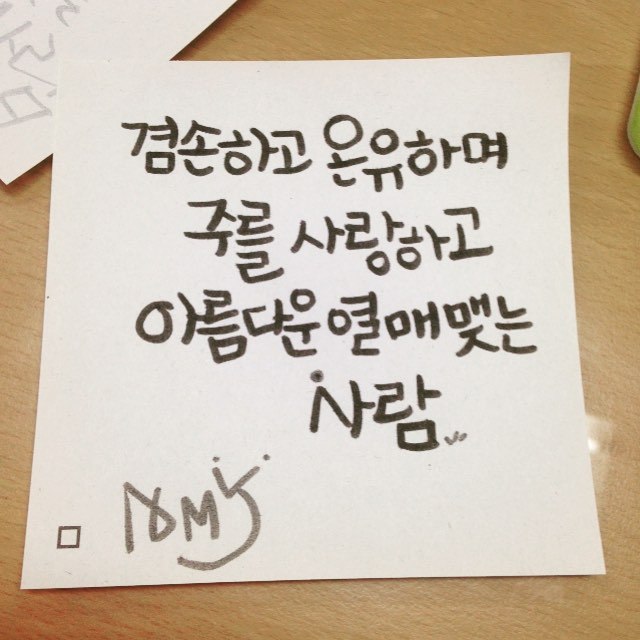 겸손하고 온유하며
주를 사랑하고
아름다운 열매 맺는
사람